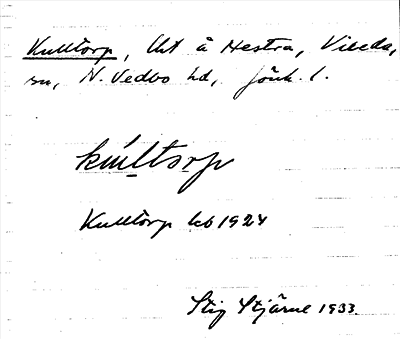 Kulltorp, lht å Nestra, Vireda,
sn, N. Vedbo hd, Jönk. l.
kúltorp
Kulltorp kb 1924
Stig Stjärne 1933.